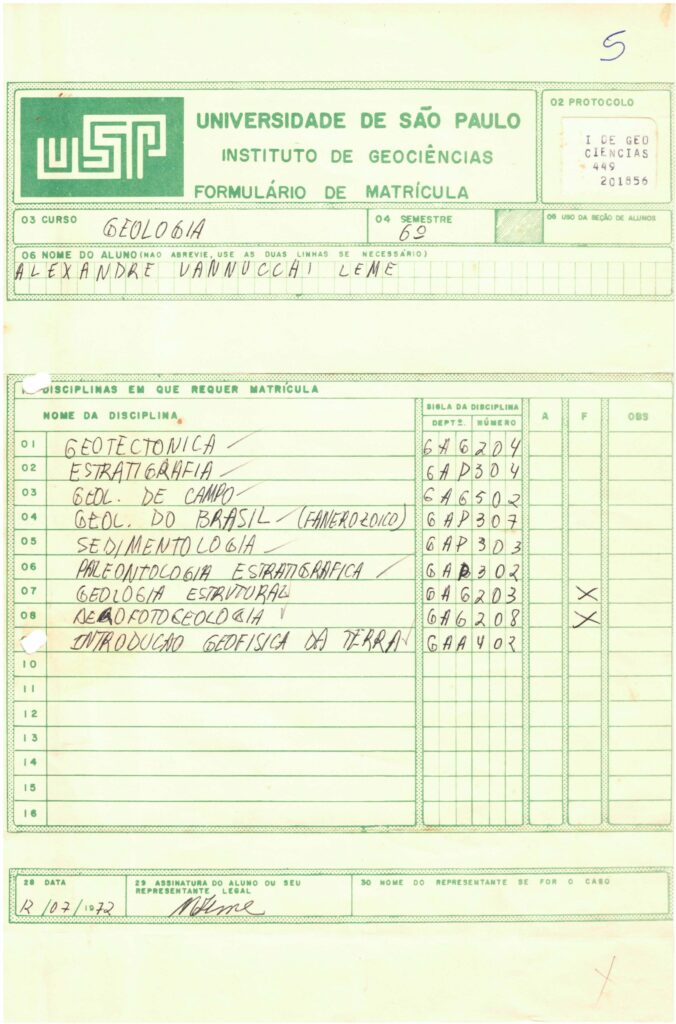 5
USP
UNIVERSIDADE DE SÃO PAULO
INSTITUTO DE GEOCIÊNCIAS
FORMULÁRIO DE MATRÍCULA
02 PROTOCOLO
I DE GEO
CIENCIAS
449
201856
03 CURSO GEOLOGIA
04 SEMESTRE 6º
USO DA SEÇÃO DE ALUNOS
06 NOME DO ALUNO (NÃO ABREVIE, USE AS DUAS LINHAS SE NECESSÁRIO)
ALEXANDRE VANNUCCHI LEME
DISCIPLINAS EM QUE REQUER MATRÍCULA
NOME DA DISCIPLINA
SIGLA DA DISCIPLINA
DEPTº. NÚMERO
A F OBS
01 GEOTECTONICA GAG204
02 ESTRATIGRAFIA GAP304
03 GEOL. DE CAMPO GAG502
04 GEOL. DO BRASIL (FANEROZOICO) GAP307
05 SEDIMENTOLOGIA GAP303
06 PALEONTOLOGIA ESTRATIGRAFICA GAP302
07 GEOLOGIA ESTRUTURAL GAG203 X
08 AEROFOTOGEOLOGIA GAG208 X
INTRODUCAO GEOFISICA DA TERRA GAA402
10
11
12
13
14
15
16
28 DATA
12/07/1972
29 ASSINATURA DO ALUNO OU SEU
REPRESENTANTE LEGAL
30 NOME DO REPRESENTANTE SE FOR O CASO